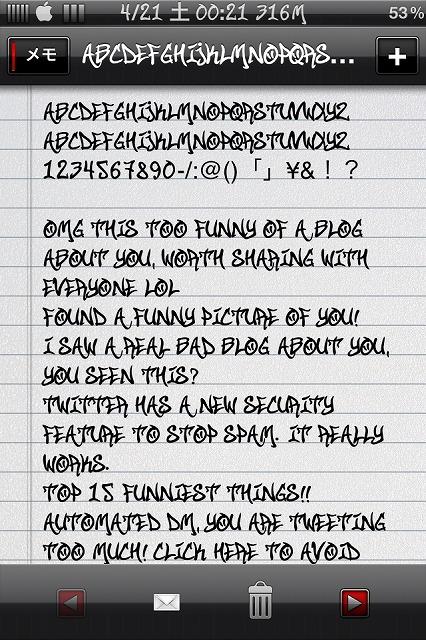 4/21 土 00:21 316M 53%
メモ ABCDEFGHIJKLMNOPQRS... +
ABCDEFGHIJKLMNOPQRSTUVWXYZ
ABCDEFGHIJKLMNOPQRSTUVWXYZ
1234567890-/:@()「」¥&！？
OMG THIS TOO FUNNY OF A BLOG
ABOUT YOU, WORTH SHARING WITH
EVERYONE LOL
FOUND A FUNNY PICTURE OF YOU!
I SAW A REAL BAD BLOG ABOUT YOU,
YOU SEEN THIS?
TWITTER HAS A NEW SECURITY
FEATURE TO STOP SPAM. IT REALLY
WORKS.
TOP 15 FUNNIEST THINGS!!
AUTOMATED DM, YOU ARE TWEETING
TOO MUCH! CLICK HERE TO AVOID